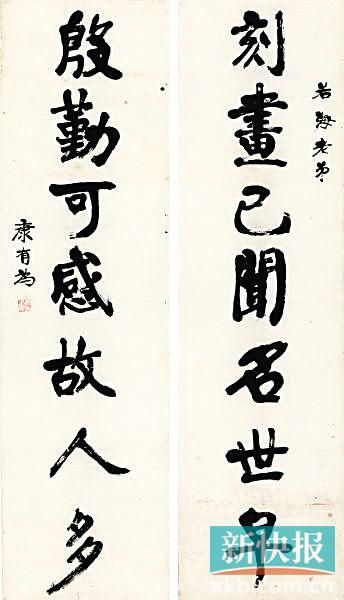 若海老弟
刻畫已聞名世早
殷勤可感故人多
康有為
新快报
xkb.com.cn